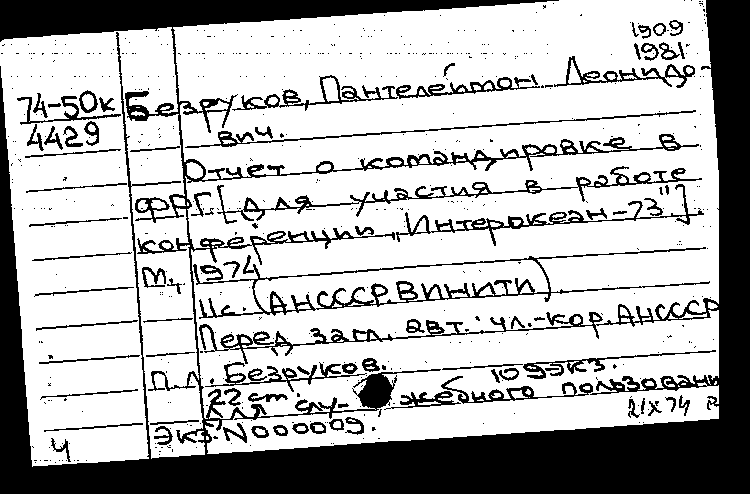 1909
1981
74-50к
4429
Безруков, Пантелеймон Леонидо-
вич.
Отчет о командировке в
ФРГ. [Для участия в работе
конференции „Интерокеан-73"].
М., 1974
11с. (АН СССР. ВИНИТИ).
Перед загл. авт.: чл.-кор. АН СССР
П.Л. Безруков.
22 cm. 109 экз.
Для слу- жебного пользовани
Экз. N 000009.
21 X 74
4